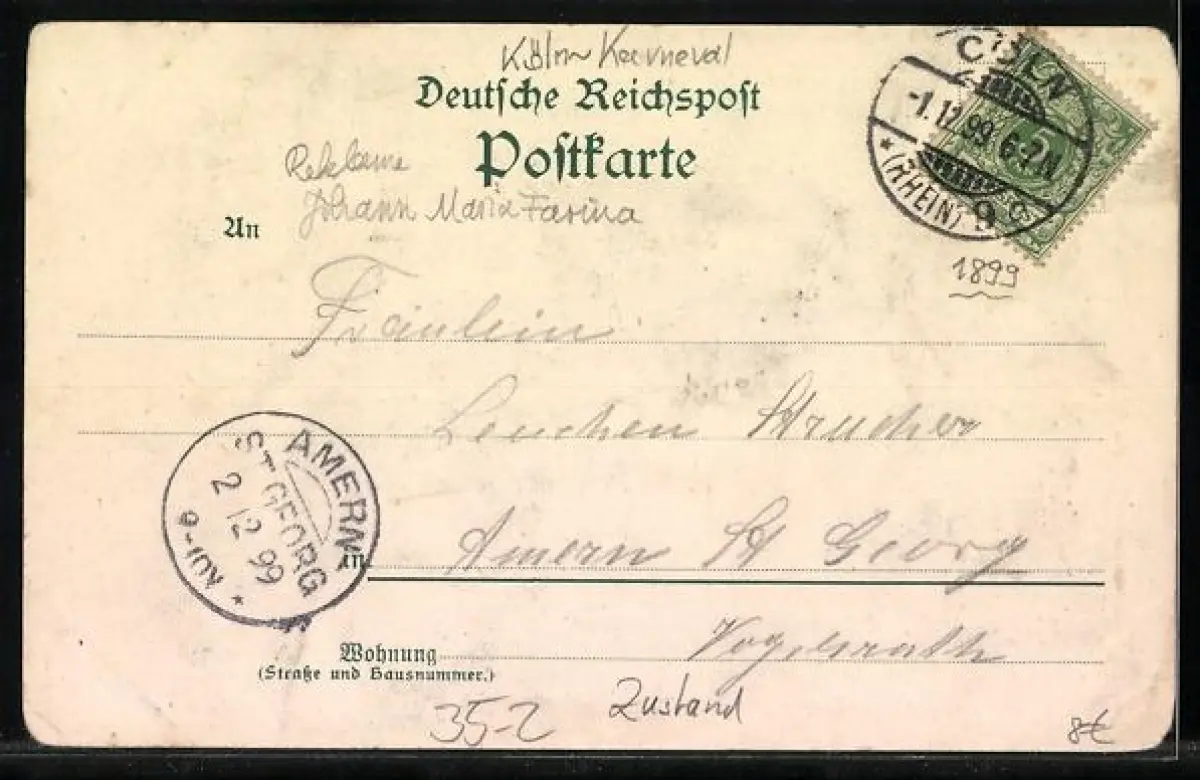 Köln Karneval
Deutsche Reichspost
Postkarte
Reklame
Johann Maria Farina
An
CÖLN
-1.12.99 6-7N
* (RHEIN) 9 c
5
1899
Fräulein
Lenchen Strucker
AMERN
ST GEORG
2 12 99
9-10V *
in
Amern St Georg
Vogelsrath
Wohnung
(Straße und Hausnummer.)
35-2
Zustand
8€